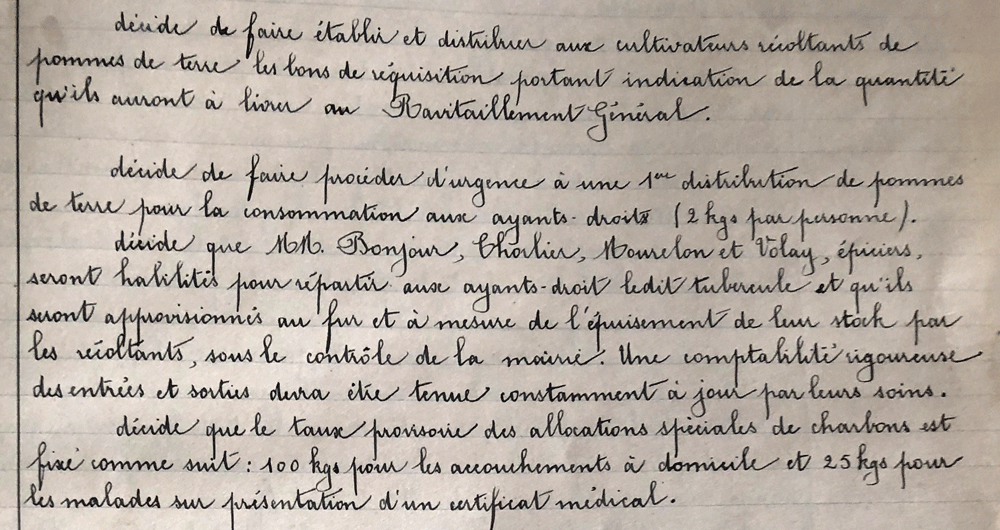 décide de faire établir et distribuer aux cultivateurs récoltants de
pommes de terre les bons de réquisition portant indication de la quantité
qu'ils auront à livrer au Ravitaillement Général.
décide de faire procéder d'urgence à une 1ère distribution de pommes
de terre pour la consommation aux ayants-droits (2 kgs par personne).
décide que MM. Bonjour, Charlier, Mourelon et Volay, épiciers,
seront habilités pour répartir aux ayants-droit ledit tubercule et qu'ils
seront approvisionnés au fur et à mesure de l'épuisement de leur stock par
les récoltants, sous le contrôle de la mairie. Une comptabilité rigoureuse
des entrées et sorties devra être tenue constamment à jour par leurs soins.
décide que le taux provisoire des allocations spéciales de charbons est
fixé comme suit : 100 kgs pour les accouchements à domicile et 25 kgs pour
les malades sur présentation d'un certificat médical.